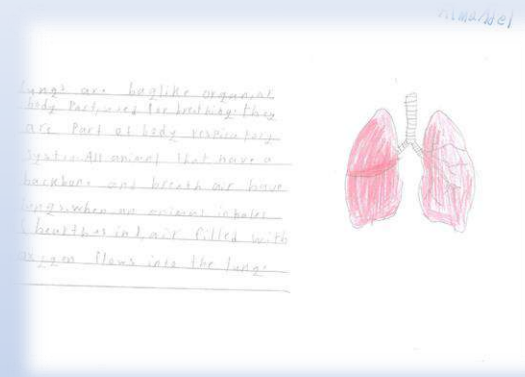 Lungs are baglike organ or
body Part, used for breathing. they
are Part of body respiratory
System All animal that have a
backbone and breath air have
lungs. when an animal inhales
breathes in, air filled with
oxygen flows into the lungs